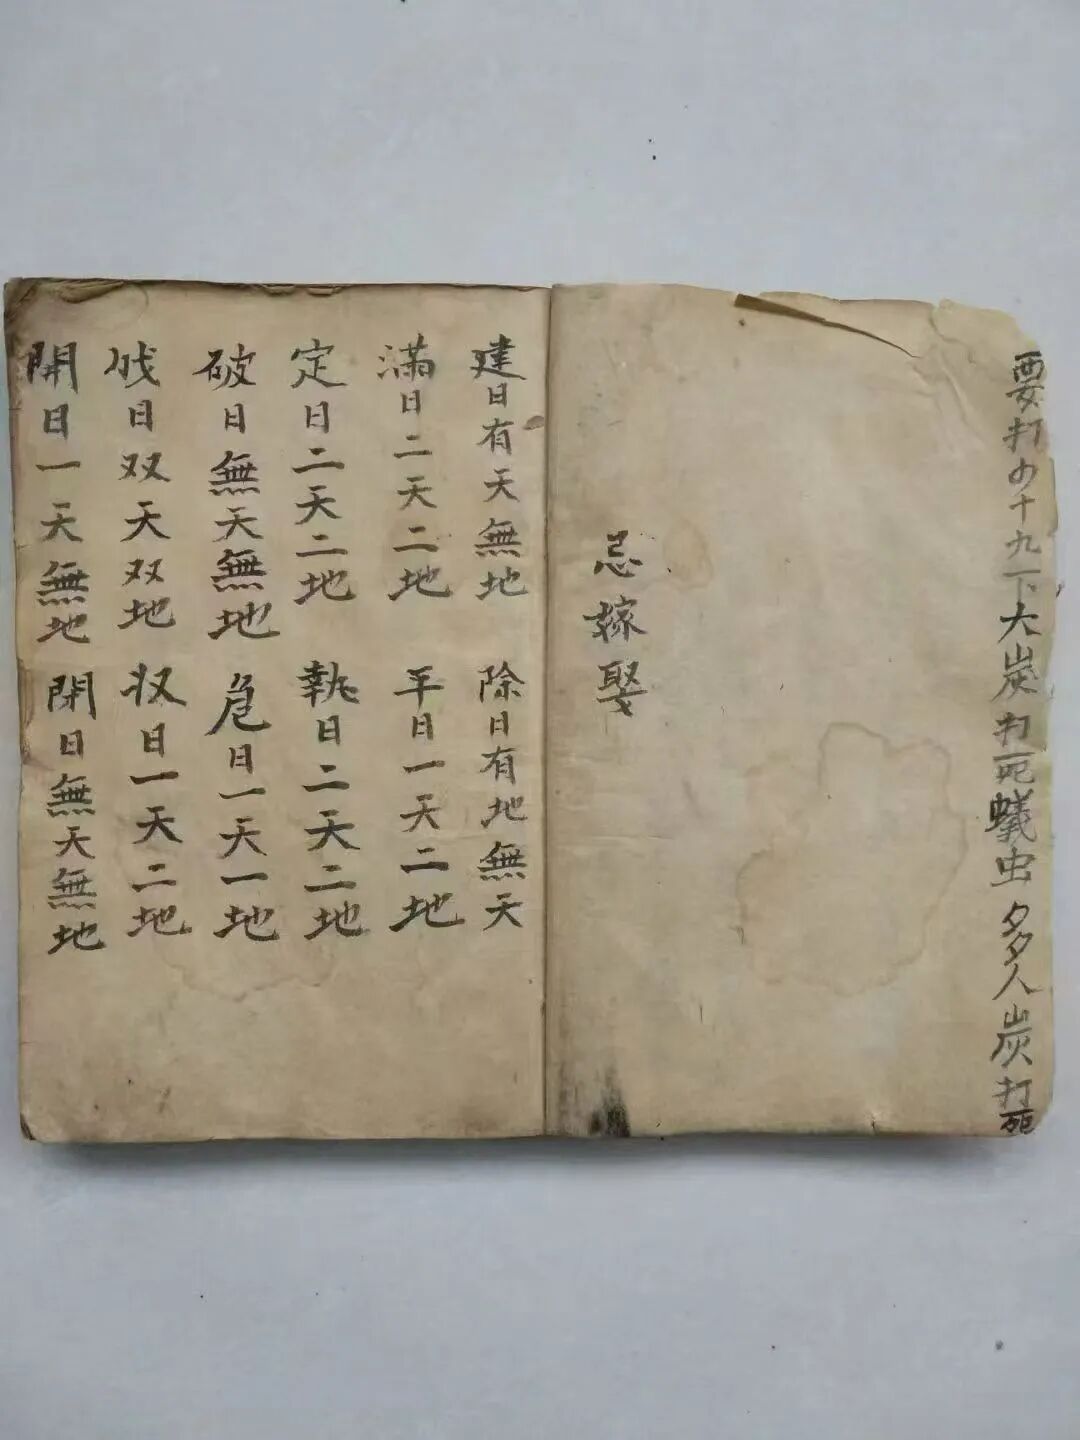 要打四十九下大炭打死蟻虫多人炭打死
忌嫁娶
建日有天無地
除日有地無天
滿日二天二地
平日一天二地
定日二天二地
執日二天二地
破日無天無地
危日一天一地
日双天双地
収日一天二地
開日一天無地
閉日無天無地